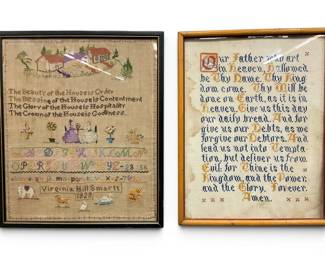 The Beauty of the House is Order
The Blessing of the House is Contentment
The Glory of the House is Hospitality
The Crown of the House is Godliness.
Virginia Hill Smartt
Our Father who art
in Heaven, Hallowed
be Thy Name. Thy King
dom come. Thy Will be
done on Earth, as it is in
Heaven. Give us this day
our daily bread. And for
give us our Debts, as we
forgive our Debtors. And
lead us not into Tempta
tion, but deliver us from
Evil: for Thine is the
Kingdom, and the Power,
and the Glory, Forever.
Amen.